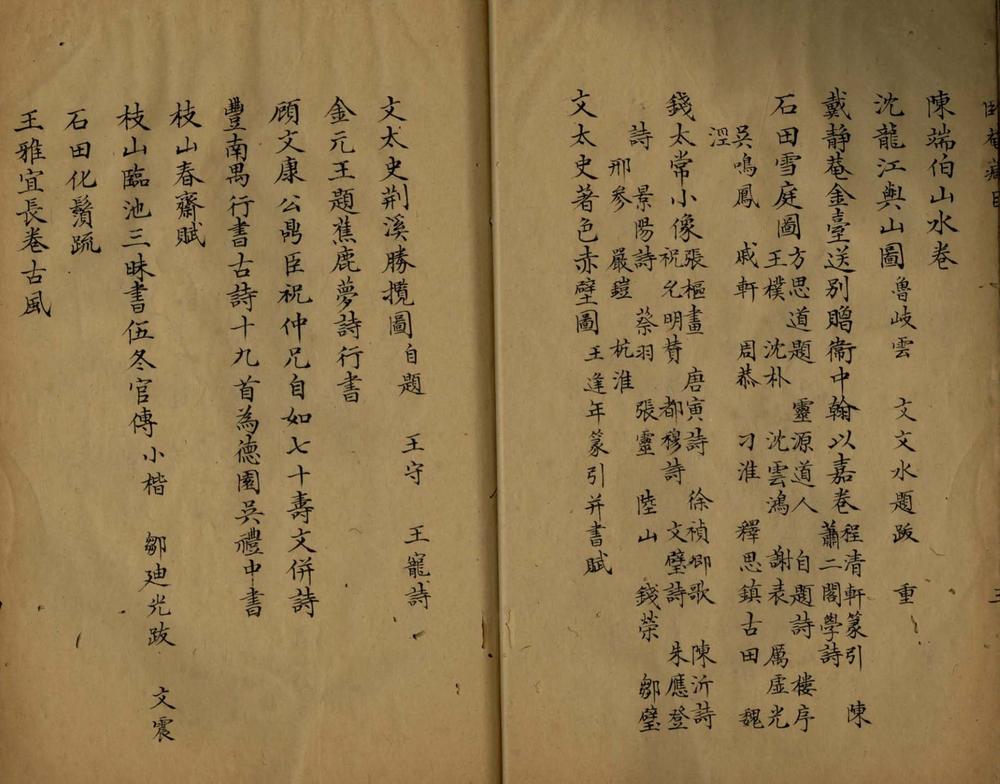 陳端伯山水卷
沈龍江輿山圖 魯岐雲 文文水題跋 重
戴靜菴金臺送別贈衞中翰以嘉卷 程清軒篆引 陳
蕭二閣學詩
石田雪庭圖 方思道題 靈源道人 自題詩 樓序
王樸 沈朴 沈雲鴻 謝表 厲虛光
吳鳴鳳 戚軒 周恭 刁淮 釋思鎮古田 魏
涇
錢太常小像 張樞畫 唐寅詩 徐禎卿歌 陳沂詩
祝允明賛 都穆詩 文璧詩 朱應登
詩 景陽詩 蔡羽 張靈 陸山 錢榮 鄒璧
邢參 嚴鎧 杭淮
文太史著色赤壁圖 王逢年篆引并書賦
文太史荆溪勝攬圖 自題 王守 王寵詩
金元王題蕉鹿夢詩行書
顧文康公鼎臣祝仲兄自如七十壽文併詩
豐南禺行書古詩十九首為德園吳禮中書
枝山春齋賦
枝山臨池三昧書伍冬官傳 小楷 鄒廸光跋 文震
石田化鬚疏
王雅宜長卷古風